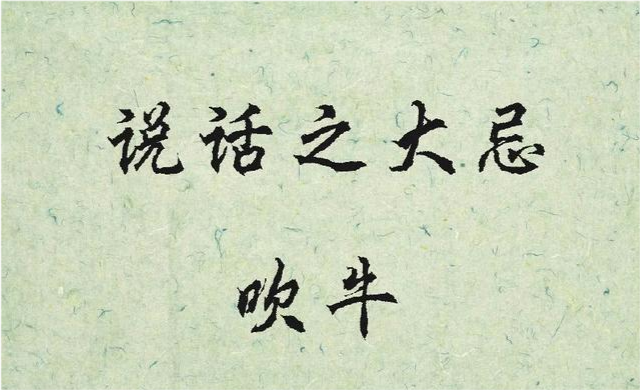 说话之大忌
吹牛